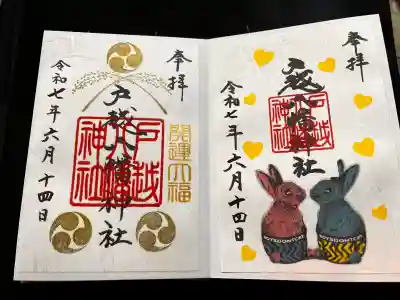 奉拝
戸越八幡神社
戸越
八幡
神社
開運大福
令和七年六月十四日
奉拝
戸越八幡神社
戸越
八幡
神社
令和七年六月十四日